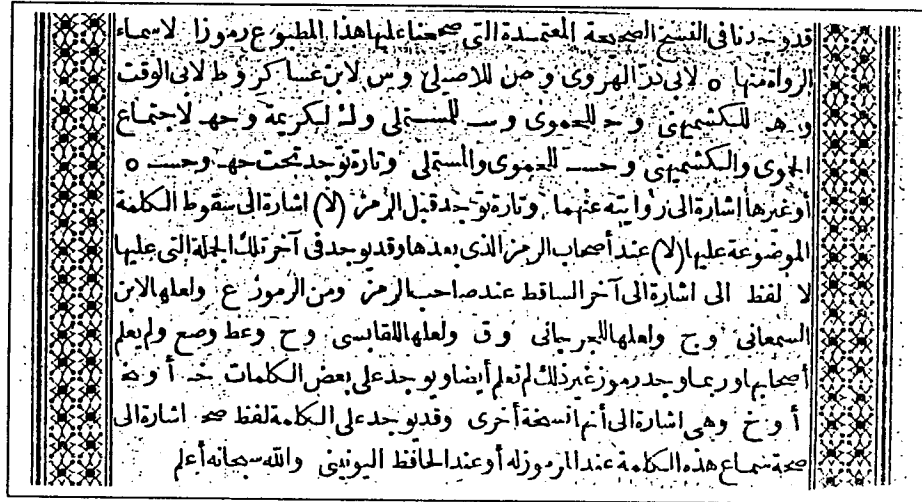 قد وجدنا فى النسخ الصحيحة المعتمدة التى صححنا عليها هذا المطبوع رموزا لاسماء
الرواة منها ه لابى ذر الهروى و ص للاصيلى و س لابن عساكر و ط لابى الوقت
و هـ للكشميهنى و حـ للحموى و ســ للمستملى و ك لكريمة و حهـ لاجتماع
الحموى والكشميهنى و حســ للحموى والمستملى وتارة توجد تحت حهـ و حســ ه
أو غيرها اشارة الى روايته عنهما وتارة توجد قبل الرمز (لا) اشارة الى سقوط الكلمة
الموضوعة عليها (لا) عند أصحاب الرمز الذى بعدها وقد يوجد فى آخر تلك الجملة التى عليها
لا لفظ الى اشارة الى آخر الساقط عند صاحب الرمز ومن الرموز ع ولعلها لابن
السمعانى و ج ولعلها للجرجانى و ق ولعلها للقابسى و ح وعط وصع ولم يعلم
أصحابها وربما وجد رموز غير ذلك لم تعلم أيضا ويوجد على بعض الكلمات خـ أو نخـ
أ و خ وهى اشارة الى أنها نسخة أخرى وقد يوجد على الكلمة لفظ صحـ اشارة الى
صحة سماع هذه الكلمة عند المرموز له أو عند الحافظ اليونينى والله سبحانه أعلم